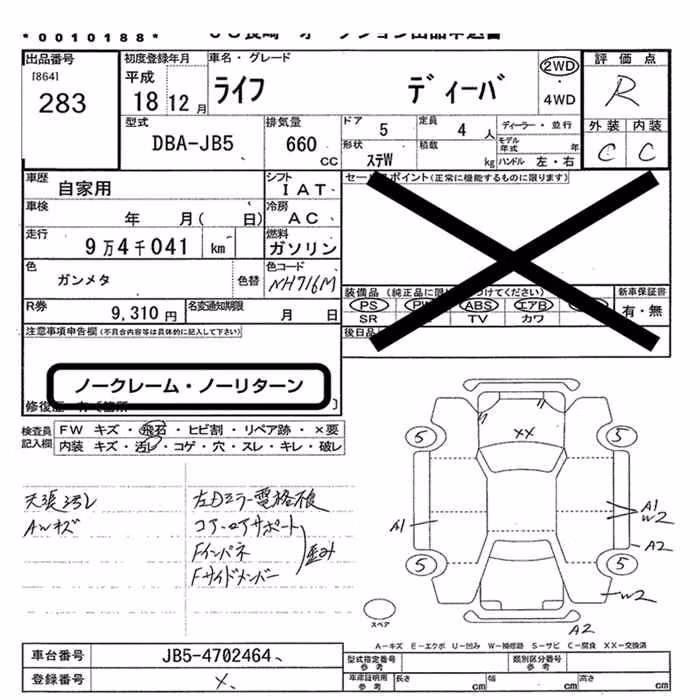 *0010188*
出品番号
[864]
283
初度登録年月
平成
18 12 月
車名・グレード
ライフ ディーバ
2WD
・
4WD
評価点
R
外装 内装
C C
型式
DBA-JB5
排気量
660 cc
ドア
5
定員
4 人
形状
ステW
積載
kg
ディーラー・並行
モデル年式 年
ハンドル 左・右
車歴
自家用
シフト
IAT
車検
年 月( 日)
冷房
AC
走行
9万4千041 km
燃料
ガソリン
色
ガンメタ
色替
色コード
NH716M
R券
9,310 円
名変通知期限
月 日
セールスポイント(正常に機能するものに限ります)
装備品
PS ABS エアB
SR TV カワ
新車保証書
有・無
後日品
注意事項申告欄(不具合内容等は具体的に記入して下さい)
ノークレーム・ノーリターン
修復歴
検査員記入欄
FW キズ・飛石・ヒビ割・リペア跡・×要
内装 キズ・汚レ・コゲ・穴・スレ・キレ・破レ
天張汚レ
AWキズ
左Dミラー電格不良
コア・ロアサポート
Fインパネ
Fサイドメンバー
歪み
XX
5 5
A1
A1
W2
A2
5 5
W2
スペア
A2
A-キズ E-エクボ U-凹み W-補修跡 S-サビ C-腐食 XX-交換済
車台番号
JB5-4702464
登録番号
×
型式指定番号
参考
類別区分番号
参考
車庫証明用
参考
長さ cm 幅 cm 高さ cm